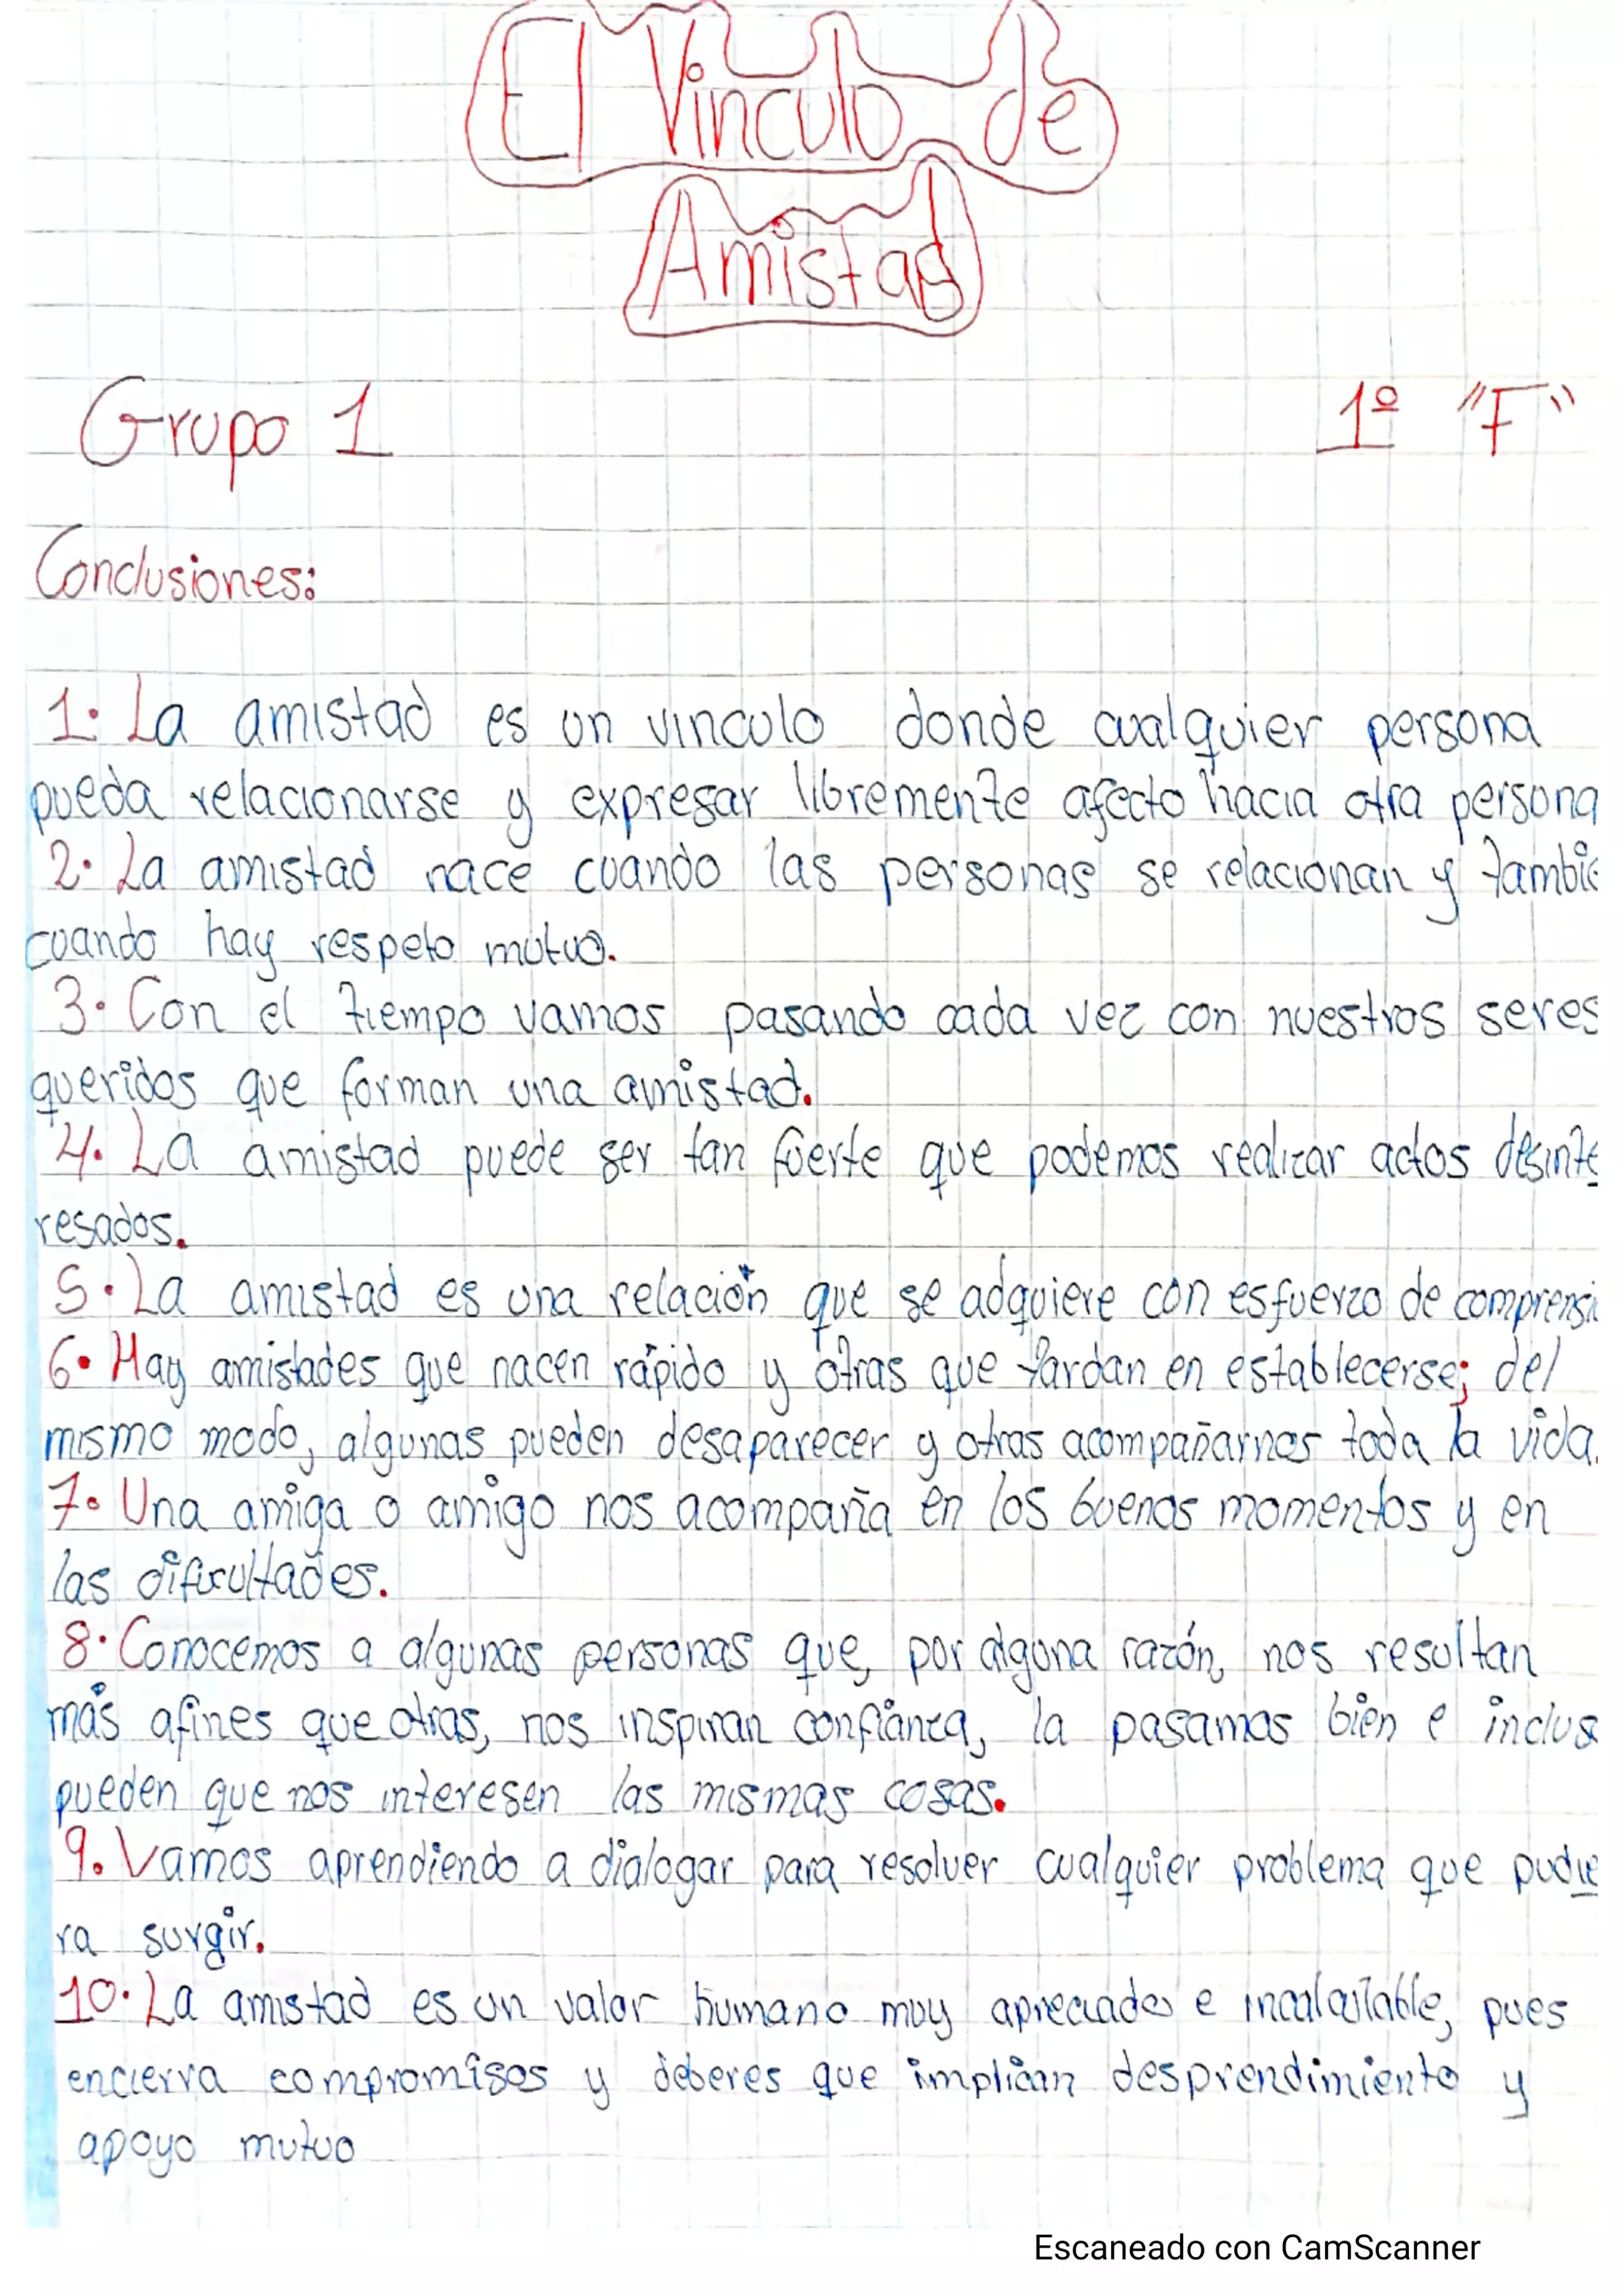 El Vinculo de
Amistad
Grupo 1 1º "F"
Conclusiones:
1. La amistad es un vinculo donde cualquier persona
pueda relacionarse y expresar libremente afecto hacia otra persona
2. La amistad nace cuando las personas se relacionan y tambié
cuando hay respeto mutuo.
3. Con el tiempo vamos pasando cada vez con nuestros seres
queridos que forman una amistad.
4. La amistad puede ser tan fuerte que podemos realizar actos desinte
resados.
5. La amistad es una relación que se adquiere con esfuerzo de comprensi
6. Hay amistades que nacen rápido y otras que tardan en establecerse; del
mismo modo, algunas pueden desaparecer y otras acompañarnos toda la vida.
7. Una amiga o amigo nos acompaña en los buenos momentos y en
las dificultades.
8. Conocemos a algunas personas que, por alguna razón, nos resultan
más afines que otras, nos inspiran confianza, la pasamos bien e inclus
pueden que nos interesen las mismas cosas.
9. Vamos aprendiendo a dialogar para resolver cualquier problema que pudie
ra surgir.
10. La amistad es un valor humano muy apreciado e incalculable, pues
encierra compromisos y deberes que implican desprendimiento y
apoyo mutuo
Escaneado con CamScanner